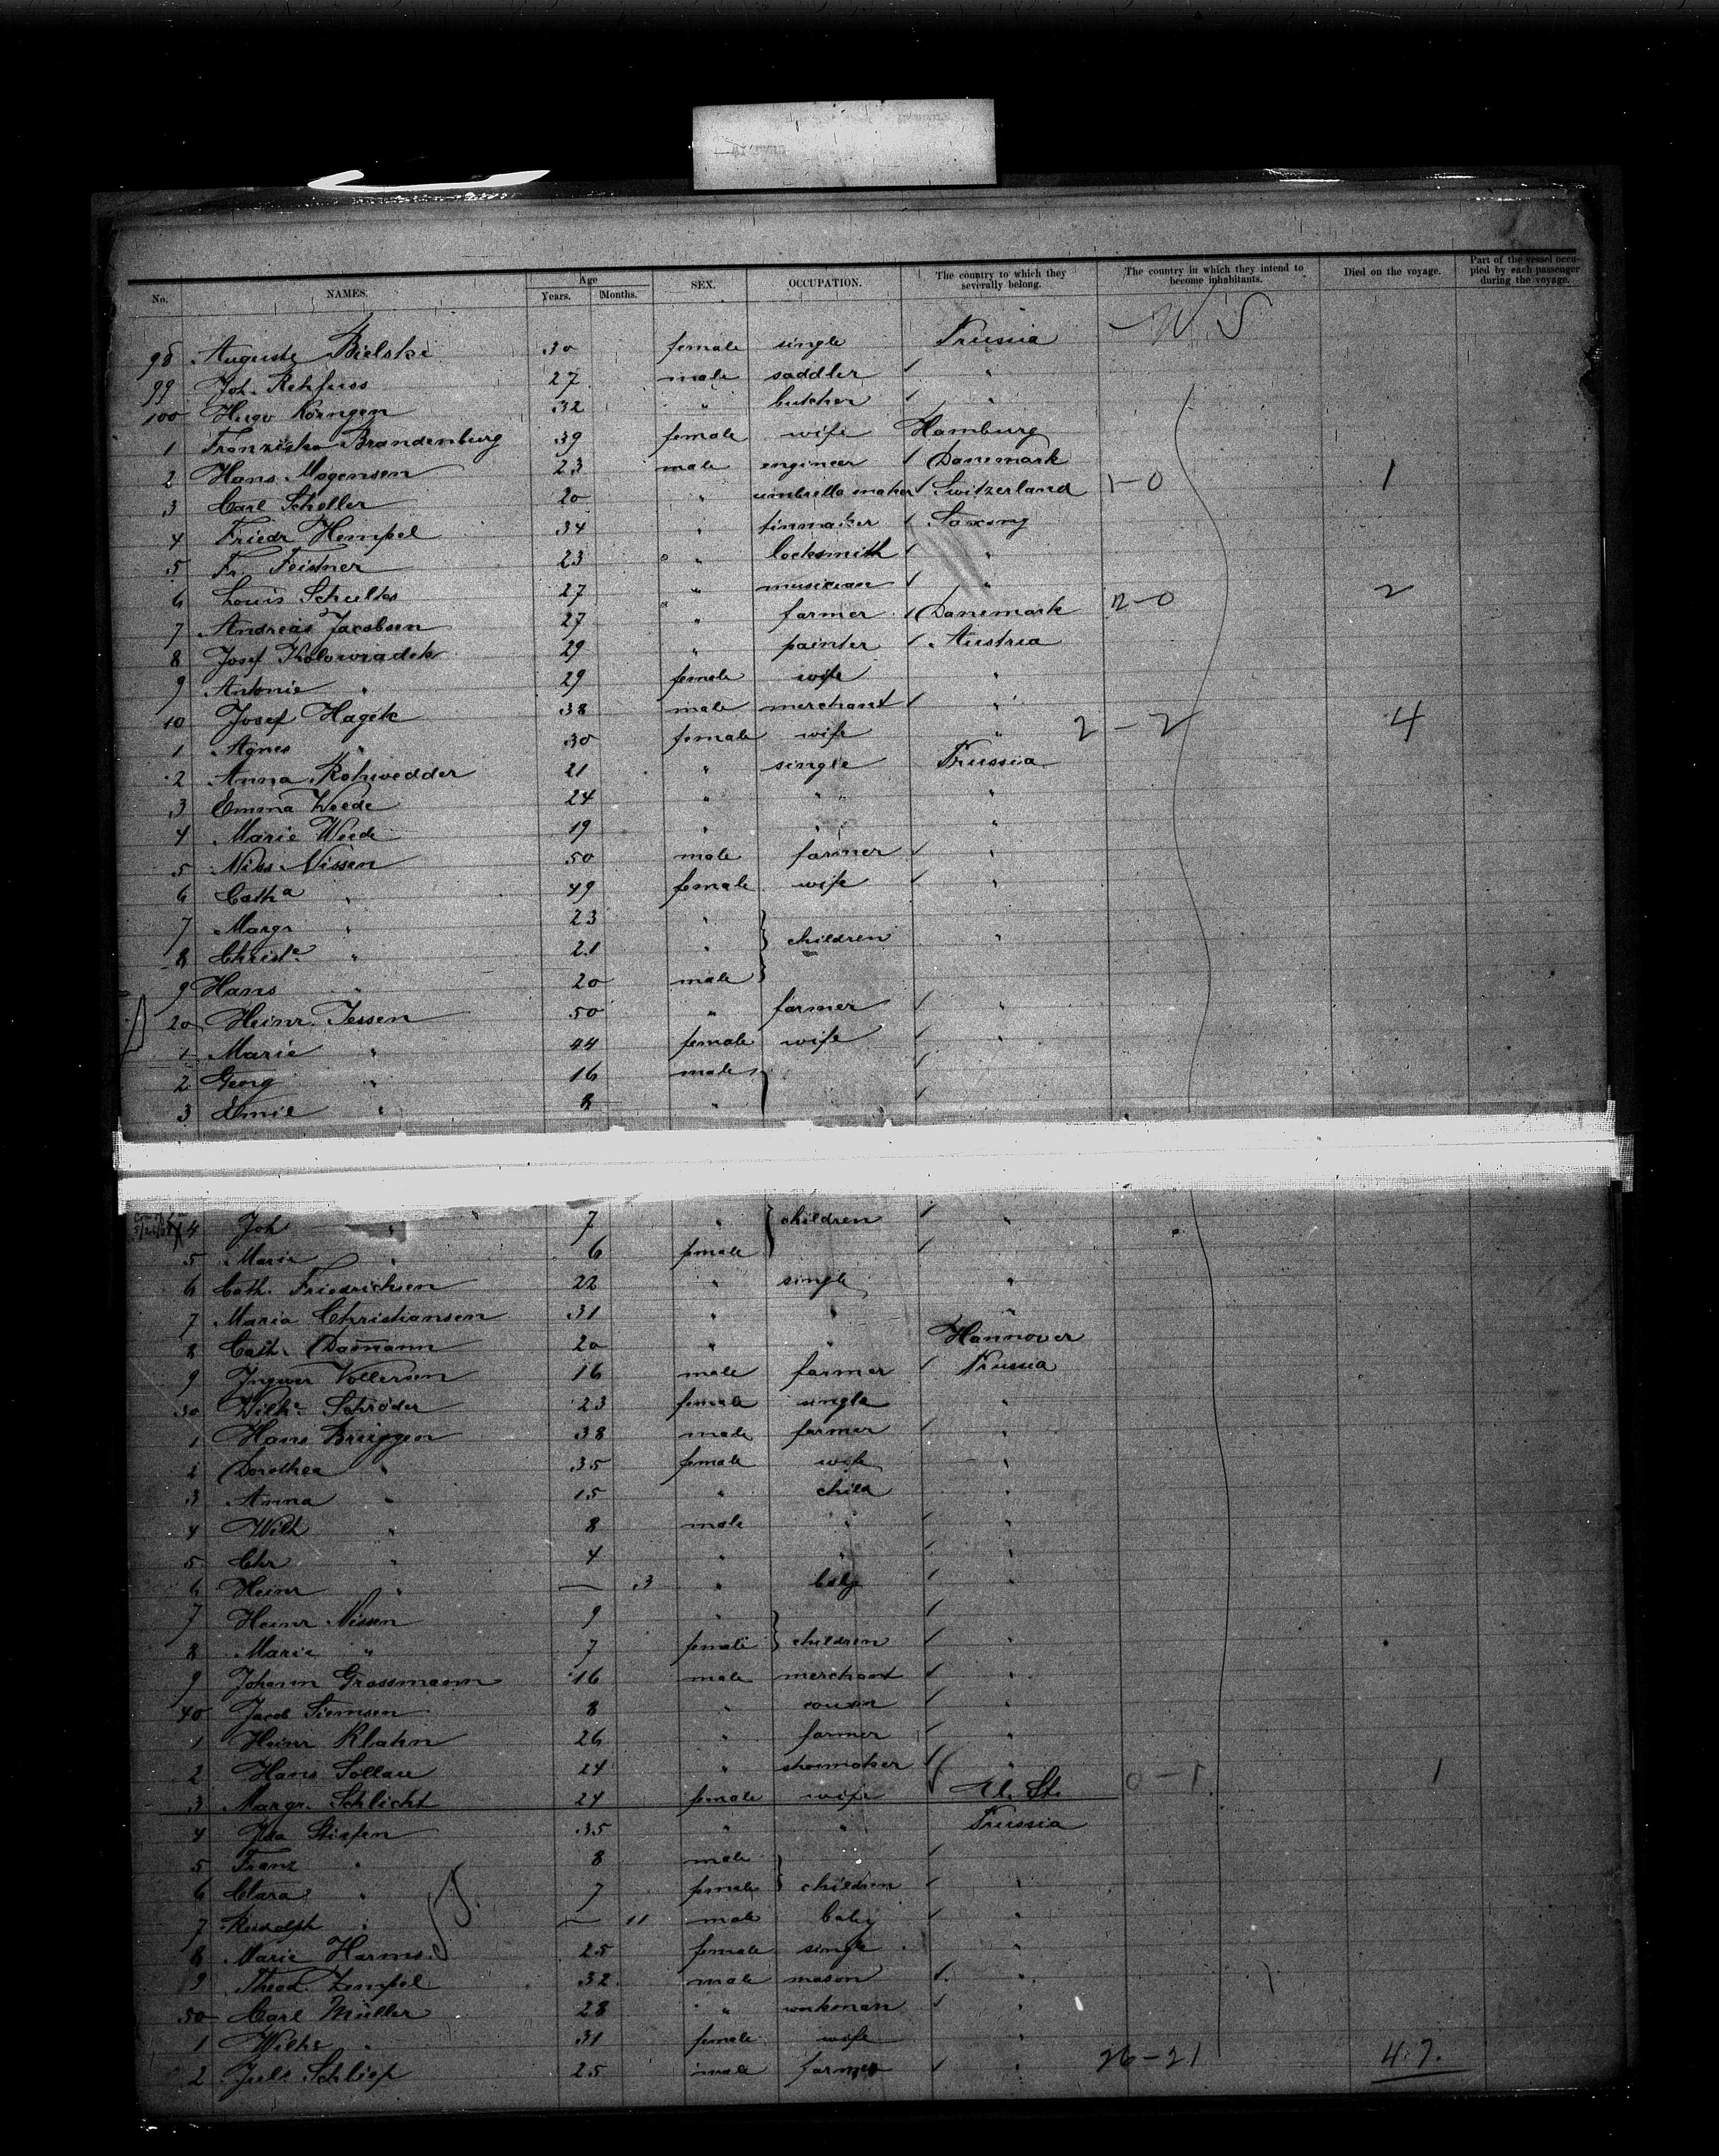 No. NAMES. Age Years. Months. SEX. OCCUPATION. The country to which they severally belong. The country in which they intend to become inhabitants. Died on the voyage. Part of the vessel occupied by each passenger during the voyage.
98 Auguste Bielski 30 female single Prussia
99 Joh. Rehfuss 27 male saddler "
100 Hugo 32 " butcher "
1 Franziska Brandenburg 39 female wife Hamburg
2 Hans Mogensen 23 male engineer Danemark
3 Carl Scheller 20 " umbrella maker Switzerland 1-0 1
4 Friedr Hempel 34 " tinmaker Saxony
5 Fr. Feistner 23 " locksmith "
6 Louis Schultes 27 " musician "
7 Andreas Jacobsen 27 " farmer Danemark 2-0 2
8 Josef Kolowradek 29 " painter Austria
9 Antonie " 29 female wife "
10 Josef Hagek 38 male merchant "
1 Agnes " 30 female wife " 2-2 4
2 Anna Rohwedder 21 " single Prussia
3 Emma Weede 24 " " "
4 Marie Weede 19 " " "
5 Nils Nissen 50 male farmer "
6 Catha " 49 female wife "
7 Margr " 23 "
8 Christe " 21 " children "
9 Hans " 20 male
20 Heinr. Jessen 50 " farmer "
1 Marie " 44 female wife "
2 Georg " 16 male
3 Emil " 8 "
4 Joh " 7 " children "
5 Marie " 6 female
6 Cath. Friedrichsen 22 " single "
7 Maria Christiansen 31 " " "
8 Cath. Damann 20 " " Hannover
9 Ingwer Vollersen 16 male farmer Prussia
30 Wilhe. Schröder 23 female single "
1 Hans Brüggen 38 male farmer "
2 Dorothea " 35 female wife "
3 Anna " 15 " child "
4 Wilh " 8 male " "
5 Chr " 4 " " "
6 Heinr " — 3 " baby "
7 Heinr Nissen 9 "
8 Marie " 7 female children "
9 Johann Grossmann 16 male merchant "
40 Jacob Siemsen 8 " cousin "
1 Heinr Klahn 26 " farmer "
2 Hans Sollau 24 " shoemaker "
3 Margr. Schlicht 24 female wife U. St. 0-1 1
4 Ida Stiefen 35 " " Prussia
5 Franz " 8 male
6 Clara " 7 female children "
7 Rudolph " — 11 male baby "
8 Marie Harms 25 female single "
9 Theod. Zempel 32 male mason "
50 Carl Müller 28 " workman "
1 Wilhe " 31 female wife "
2 Juls. Schliep 25 male farmer " 26-21 47.